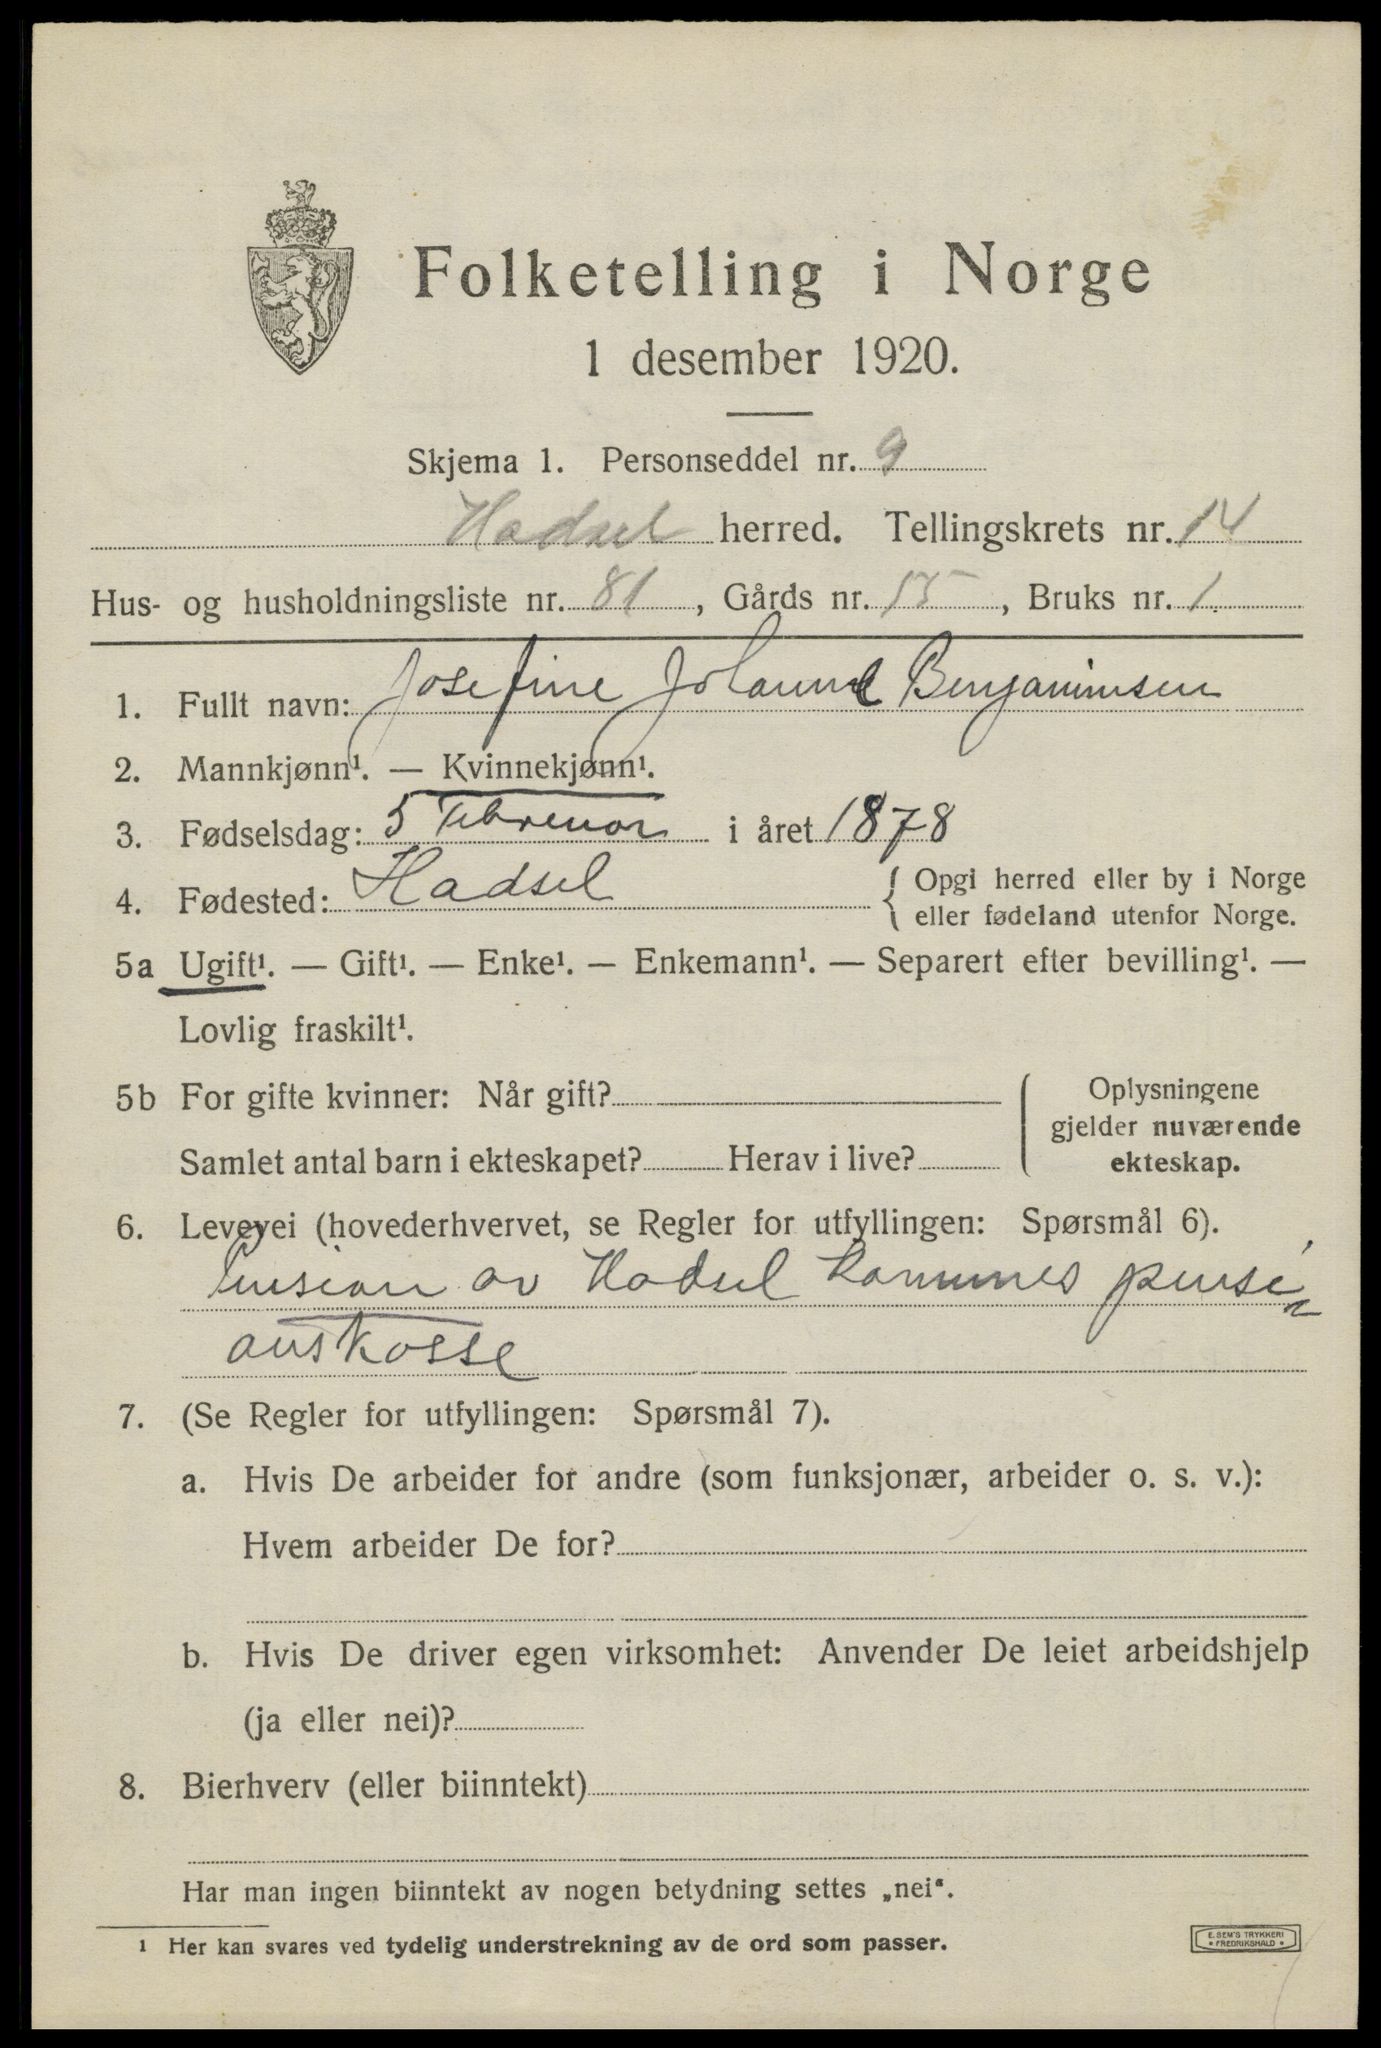 Folketelling i Norge
1 desember 1920.
Skjema 1. Personseddel nr. 9
Hadsel herred. Tellingskrets nr. 14
Hus- og husholdningsliste nr. 81, Gårds nr. 15, Bruks nr. 1.
1. Fullt navn: Josefine Johanne Benjaminsen
2. Mannkjønn¹. — Kvinnekjønn¹.
3. Fødselsdag: 5 Februar i året 1878
4. Fødested: Hadsel
{ Opgi herred eller by i Norge
eller fødeland utenfor Norge.
5a Ugift¹. — Gift¹. — Enke¹. — Enkemann¹. — Separert efter bevilling¹. —
Lovlig fraskilt¹.
5b For gifte kvinner: Når gift?
Samlet antal barn i ekteskapet? Herav i live?
Oplysningene
gjelder nuværende
ekteskap.
6. Levevei (hovederhvervet, se Regler for utfyllingen: Spørsmål 6).
Pension av Hadsel komunes pensi-
onskasse
7. (Se Regler for utfyllingen: Spørsmål 7).
a. Hvis De arbeider for andre (som funksjonær, arbeider o. s. v.):
Hvem arbeider De for?
b. Hvis De driver egen virksomhet: Anvender De leiet arbeidshjelp
(ja eller nei)?
8. Bierhverv (eller biinntekt)
Har man ingen biinntekt av nogen betydning settes „nei“.
1 Her kan svares ved tydelig understrekning av de ord som passer.
E. SEM'S TRYKKERI
• FREDRIKSHALD •